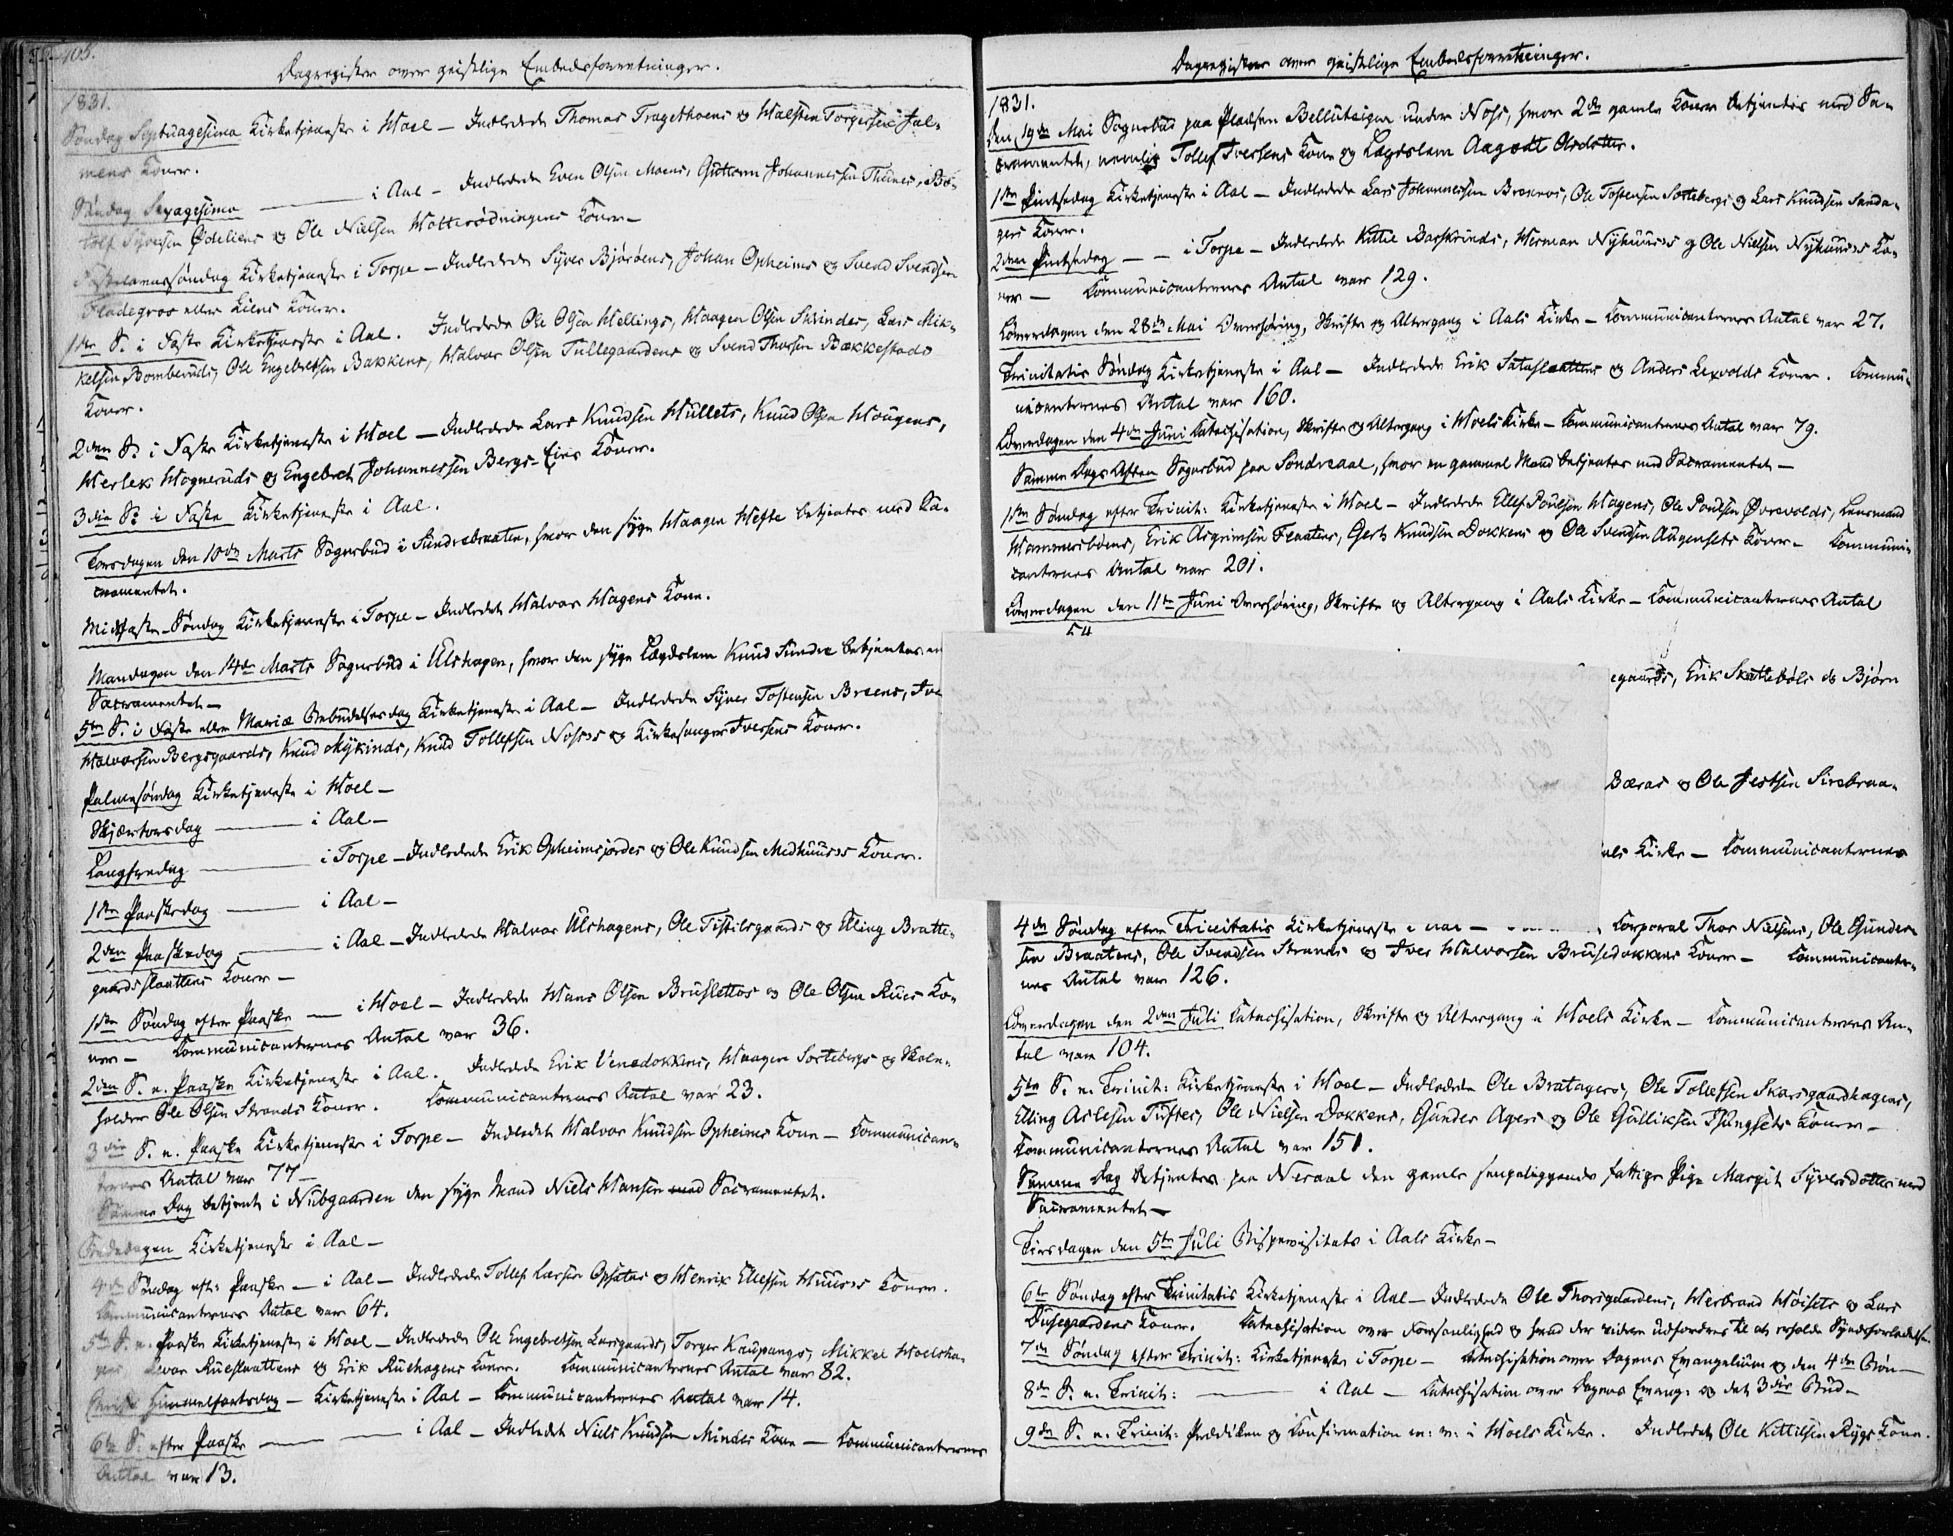 405.
Dagregister over geistlige Embedsforretninger.
1831.
Søndag Septuagesima Kirketjeneste i Hoel – Indledede Thomas Tragethoens og Halsten Torgersen Jal-
mens Koner.
Søndag Sexagesima ——— i Aal – Indledede Even Olsen Moens, Guttorm Johannessen Thunes, Bo-
tolf Syversen Ødeliens og Ole Nielsen Holterødningens Koner –
Fastelavnssøndag Kirketjeneste i Torpe – Indledede Syver Bjøröens, Johan Opheims og Svend Svendsen
Fladegros eller Liens Koner.
1ste S. i Faste Kirketjeneste i Aal. Indledede Ole Olsen Hellings, Haagen Olsen Skrindes, Lars Mik-
kelsen Bomberuds, Ole Engebretsen Bakkens, Halvor Olsen Tullegaardens og Svend Thorsen Bækkestads
Koner.
2den S. i Faste Kirketjeneste i Hoel – Indledede Lars Knudsen Hullets, Knud Olsen Hougens,
Herlek Hogneruds og Engebret Johannessen Bergs-Eies Koner.
3die S. i Faste Kirketjeneste i Aal.
Torsdagen den 10de Marts Sognebud i Sundrebraaten, hvor den syge Haagen Hefte betjentes med Sa-
cramentet.
Midfaste-Søndag Kirketjeneste i Torpe – Indledet Halvor Hagens Kone.
Mandagen den 14de Marts Sognebud i Ulshagen, hvor den syge Lægdslem Knud Sundre betjentes m
Sacramentet –
5te S. i Faste eller Mariæ Bebudelsesdag Kirketjeneste i Aal – Indledede Syver Tostensen Breens, Ive
Halvorsen Bergsgaards, Knud Mykinds, Knud Tollefsen Noss's og Kirkesanger Iversens Koner.
Palmesøndag Kirketjeneste i Hoel –
Skjærtorsdag ——— i Aal –
Langfredag ——— i Torpe – Indledede Erik Opheimsjordes og Ole Knudsen Medhuus's Koner.
1ste Paaskedag ——— i Aal –
2den Paaskedag ——— i Aal – Indledede Halvor Ulshagens, Ole Tistilsgaards og Elling Bratte-
gaardsslaattens Koner –
1ste Søndag efter Paaske — i Hoel – Indledede Hans Olsen Bruslettos og Ole Olsen Rues Ko-
ner – Communicanternes Antal var 36.
2den S. e. Paaske Kirketjeneste i Aal. Indledede Erik Venedokkens, Haagen Sortebergs og Skole-
holder Ole Olsen Strands Koner. Communicanternes Antal var 23.
3die S. e. Paaske Kirketjeneste i Torpe – Indledet Halvor Knudsen Opheims Kone – Communican-
ternes Antal var 77 –
Samme Dag betjent i Nubgaarden den syge Mand Niels Hansen med Sacramentet.
Bededagen Kirketjeneste i Aal –
4de Søndag eft: Paaske — i Aal – Indledede Tollef Larsen Opsatas og Henrik Ellefsen Huus's Koner.
Communicanternes Antal var 64.
5te S. e. Paaske Kirketjeneste i Hoel – Indledede Ole Engebretsen Larsgaards, Torger Kaupangs, Mikkel Hoelsha-
gens, Ivar Rueslaattens og Erik Ruehagens Koner. Communicanternes Antal var 82.
Christi Himmelfartsdag – Kirketjeneste i Aal – Communicanternes Antal var 14.
6te S. efter Paaske ——— i Aal – Indledet Niels Knudsen Mindes Kone – Communicanternes
Antal var 13.
Dagregister over geistlige Embedsforretninger.
1831.
Den 19de Mai Sognebud paa Pladsen Belluteigen under Noss, hvor 2de gamle Koner betjentes med Sa-
cramentet, nemlig Tollef Iversens Kone og Lægdslem Aagodt Olsdotter.
1ste Pintsedag Kirketjeneste i Aal – Indledede Lars Johannessen Brennos, Ole Tostensen Sortebergs og Lars Knudsen Sunda-
gers Koner.
2den Pintsedag – – i Torpe – Indledede Kittil Barskrinds, Herman Nyhuus's og Ole Nielsen Nyhuus's Ko-
ner – Communicanternes Antal var 129.
Løverdagen den 28de Mai Overhøring, Skrifte og Altergang i Aals Kirke – Communicanternes Antal var 27.
Trinitatis Søndag Kirketjeneste i Aal – Indledede Erik Sataslaattens og Anders Lexvolds Koner. Commu-
nicanternes Antal var 160.
Løverdagen den 4de Juni Catechisation, Skrifte og Altergang i Hoels Kirke – Communicanternes Antal var 79.
Samme Dags Aften Sognebud paa Sondreaal, hvor en gammel Mand betjentes med Sacramentet –
1ste Søndag efter Trinit: Kirketjeneste i Hoel – Indledede Ellef Poulsen Hagens, Ole Poulsen Øvrevolds, Lensmand
Hammersbøens, Erik Asgrimsen Flaatens, Gert Knudsen Dokkens og Ole Svendsen Augensets Koner – Communi-
canternes Antal var 201.
Løverdagen den 11te Juni Overhøring, Skrifte og Altergang i Aals Kirke – Communicanternes Antal
54
egaards, Erik Skattebøls og Bjørn
Bæras og Ole Jestsen Sirebraa-
als Kirke – Communicanternes
4de Søndag efter Trinitatis Kirketjeneste i Aal – Corporal Thor Nielsens, Ole Gunder-
sen Braatens, Ole Svendsen Strands og Iver Halvorsen Brusedokkens Koner – Communicanter-
nes Antal var 126.
Løverdagen den 2den Juli Catechisation, Skrifte og Altergang i Hoels Kirke – Communicanternes An-
tal var 104.
5te S. e. Trinit: Kirketjeneste i Hoel – Indledede Ole Bratagers, Ole Tollefsen Skarsgaardhagens,
Elling Aslesen Tuftes, Ole Nielsen Dokkens, Gunder Agers og Ole Gulliksen Tyungsets Koner –
Communicanternes Antal var 151.
Samme Dag betjentes paa Nesaal den gamle sengeliggende fattige Pige Margit Syversdotter med
Sacramentet –
Tirsdagen den 5te Juli Bispevisitats i Aals Kirke –
6te Søndag efter Trinitatis Kirketjeneste i Aal – Indledede Ole Thorsgaardens, Herbrand Høisets og Lars
Dusegardens Koner. Catechisation over Forsonlighed og hvad der videre udfordres til at erholde Syndsforladelse.
7de Søndag efter Trinit: Kirketjeneste i Torpe – Catechisation over Dagens Evangelium og den 4de Bøn –
8de S. e. Trinit: ——— i Aal – Catechisation over Dagens Evang: og det 3die Bud –
9de S. e. Trinit: Prædiken og Confirmation m: v: i Hoels Kirke. Indledet Ole Kittilsen Rygs Kone.